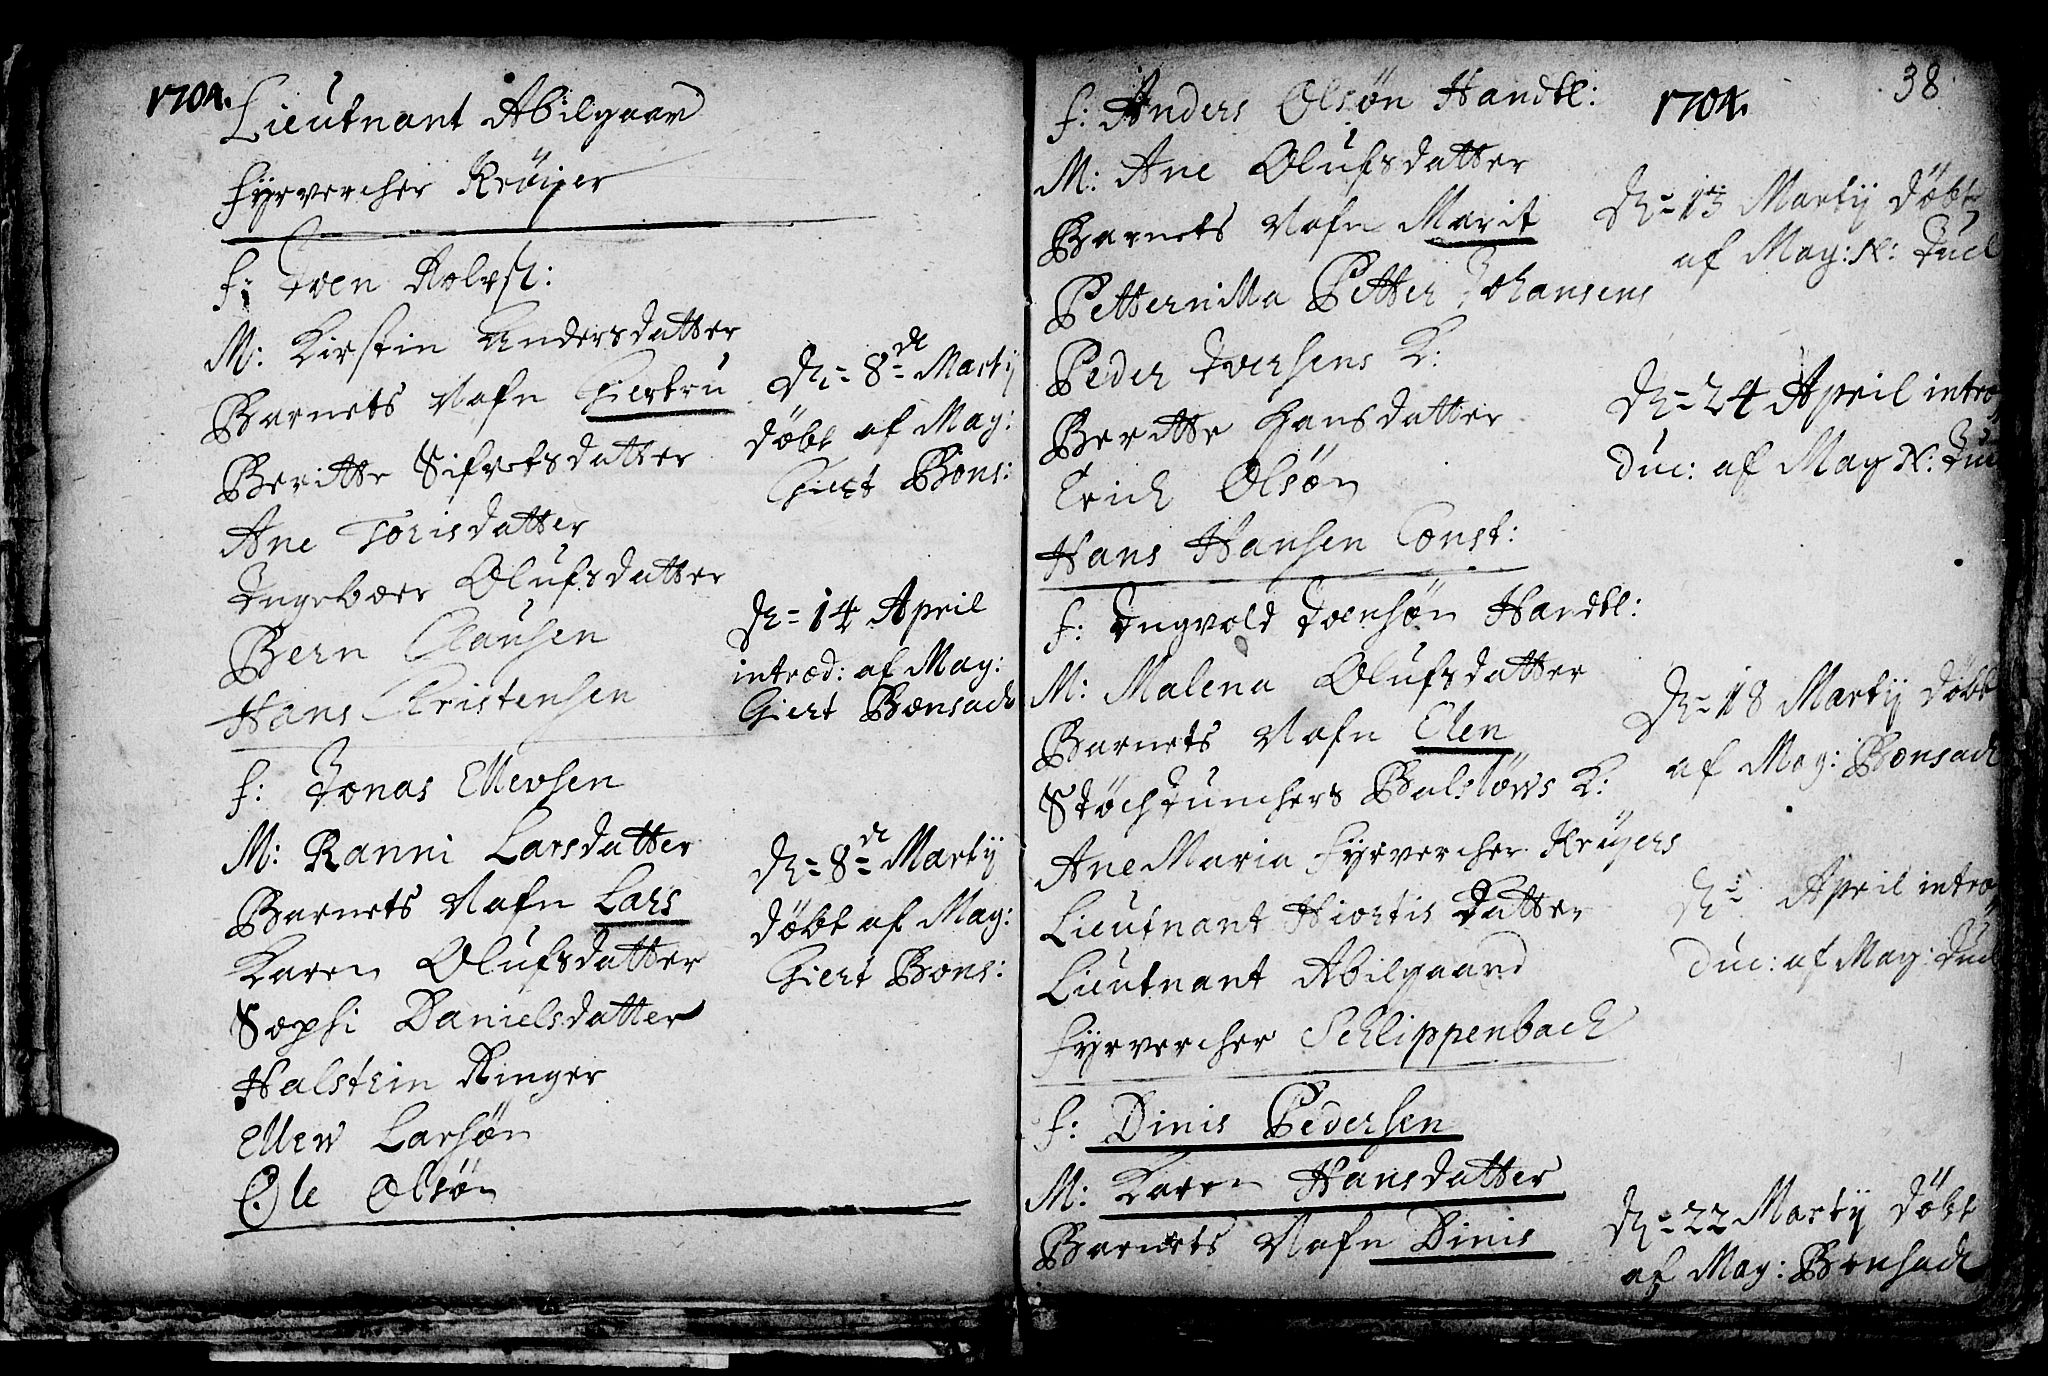 1704.
Lieutnant Abilgaar
fyrvercher Kröÿer
f: Joen Rolvs:
M: Kirstin Andersdatter
Barnets Nafn Giertru
Beritte Sifretsdatter
Ane Torisdatter
Ingebaar Olufsdatter
Bern Clausen
Hans Christensen
dn= 8de Martij
döbt af Mag:
Giert Bons:
dn= 14 April
introd: af Mag:
Giert Bonsach
f: Jonas Ellevsen
M: Ranni Larsdatter
Barnets Nafn Lars
Karen Olufsdatter
Sophi Danielsdatter
Halstein Ringer
Ellew Larsøn
Ole Olsøn
dn= 8de Martij
döbt af Mag:
Giert Bons:
38
1704.
f: Anders Olsøn Handtl:
M: Ane Olufsdatter
Barnets Nafn Marit
Petternilla Petter Johansens
Peder Iversens K:
Beritte Hansdatter
Erich Olsøn
Hans Hansen Const:
dn= 13 Martij döbt
af Mag: N: Tuel
dn= 24 April intro
duc: af Mag N: Tue
f: Ingvold Joensøn Handtl:
M: Malena Olufsdatter
Barnets Nafn Elen
Støchjunchers Balslöws K:
Ane Maria fyrvercher Krüÿers
Lieutnant Hiortis datter
Lieutnant Abilgaard
fyrvercher Schlippenbach
dn= 18 Martij döbt
af Mag: Bonsach
dn= April intro
duc: af Mag: Tuel
f: Dinis Pedersen
M: Karen Hansdatter
Barnets Nafn Dinis
dn= 22 Martij döbt
af Mag: Bonsach